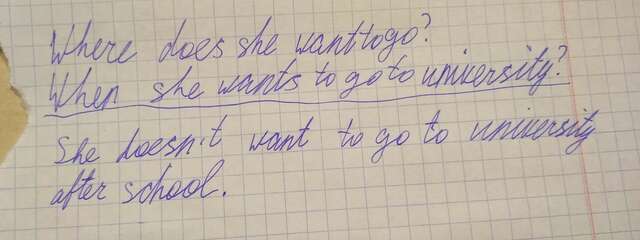 Where does she want to go?
When she wants to go to university?
She doesn't want to go to university
after school.